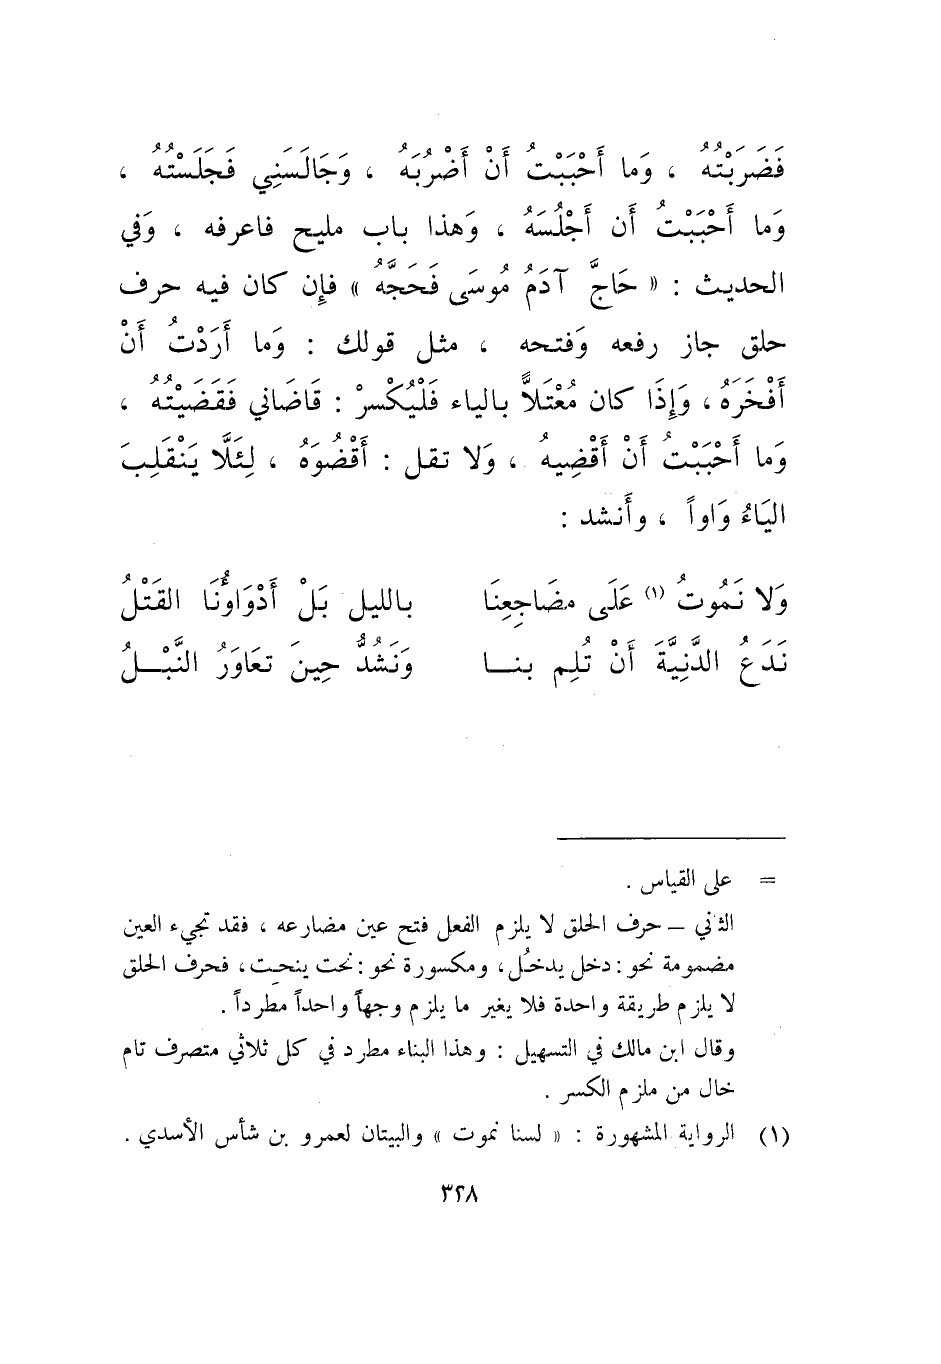 فَضَرَبْتُهُ ، وَما أَحْبَبْتُ أَنْ أَضْرُبَهُ ، وَجَالَسَنِي فَجَلَسْتُهُ ،
وَما أَحْبَبْتُ أَن أَجْلُسَهُ ، وَهذا باب مليح فاعرفه ، وَفي
الحديث : « حَاجَّ آدَمُ مُوسَى فَحَجَّهُ » فإِن كان فيه حرف
حلق جاز رفعه وَفتحه ، مثل قولك : وَما أَرَدْتُ أَنْ
أَفْخَرَهُ ، وَإِذَا كان مُعْتَلاًّ بالياء فَلْيُكْسرْ : قَاضَاني فَقَضَيْتُهُ ،
وَما أَحْبَبْتُ أَنْ أَقْضِيهُ ، وَلا تقل : أَقْضُوَهُ ، لِئَلَّا يَنْقَلِبَ
اليَاءُ وَاواً ، وأَنشد :
وَلا نَمُوتُ (١) عَلَى مضَاجعِنَا بالليل بَلْ أَدْوَاؤُنَا القَتْلُ
نَدَعُ الدَّنِيَّةَ أَنْ تُلِم بنــا وَنَشُدُّ حِينَ تعَاوَرُ النَّبْــلُ
= على القياس .
الثاني – حرف الحلق لا يلزم الفعل فتح عين مضارعه ، فقد تجيء العين
مضمومة نحو : دخل يدخُل ، ومكسورة نحو : نحت ينحِت ، فحرف الحلق
لا يلزم طريقة واحدة فلا يغير ما يلزم وجهاً واحداً مطرداً .
وقال ابن مالك في التسهيل : وهذا البناء مطرد في كل ثلاثي متصرف تام
خال من ملزم الكسر .
(١) الرواية المشهورة : « لسنا نموت » والبيتان لعمرو بن شأس الأسدي .
٣٢٨